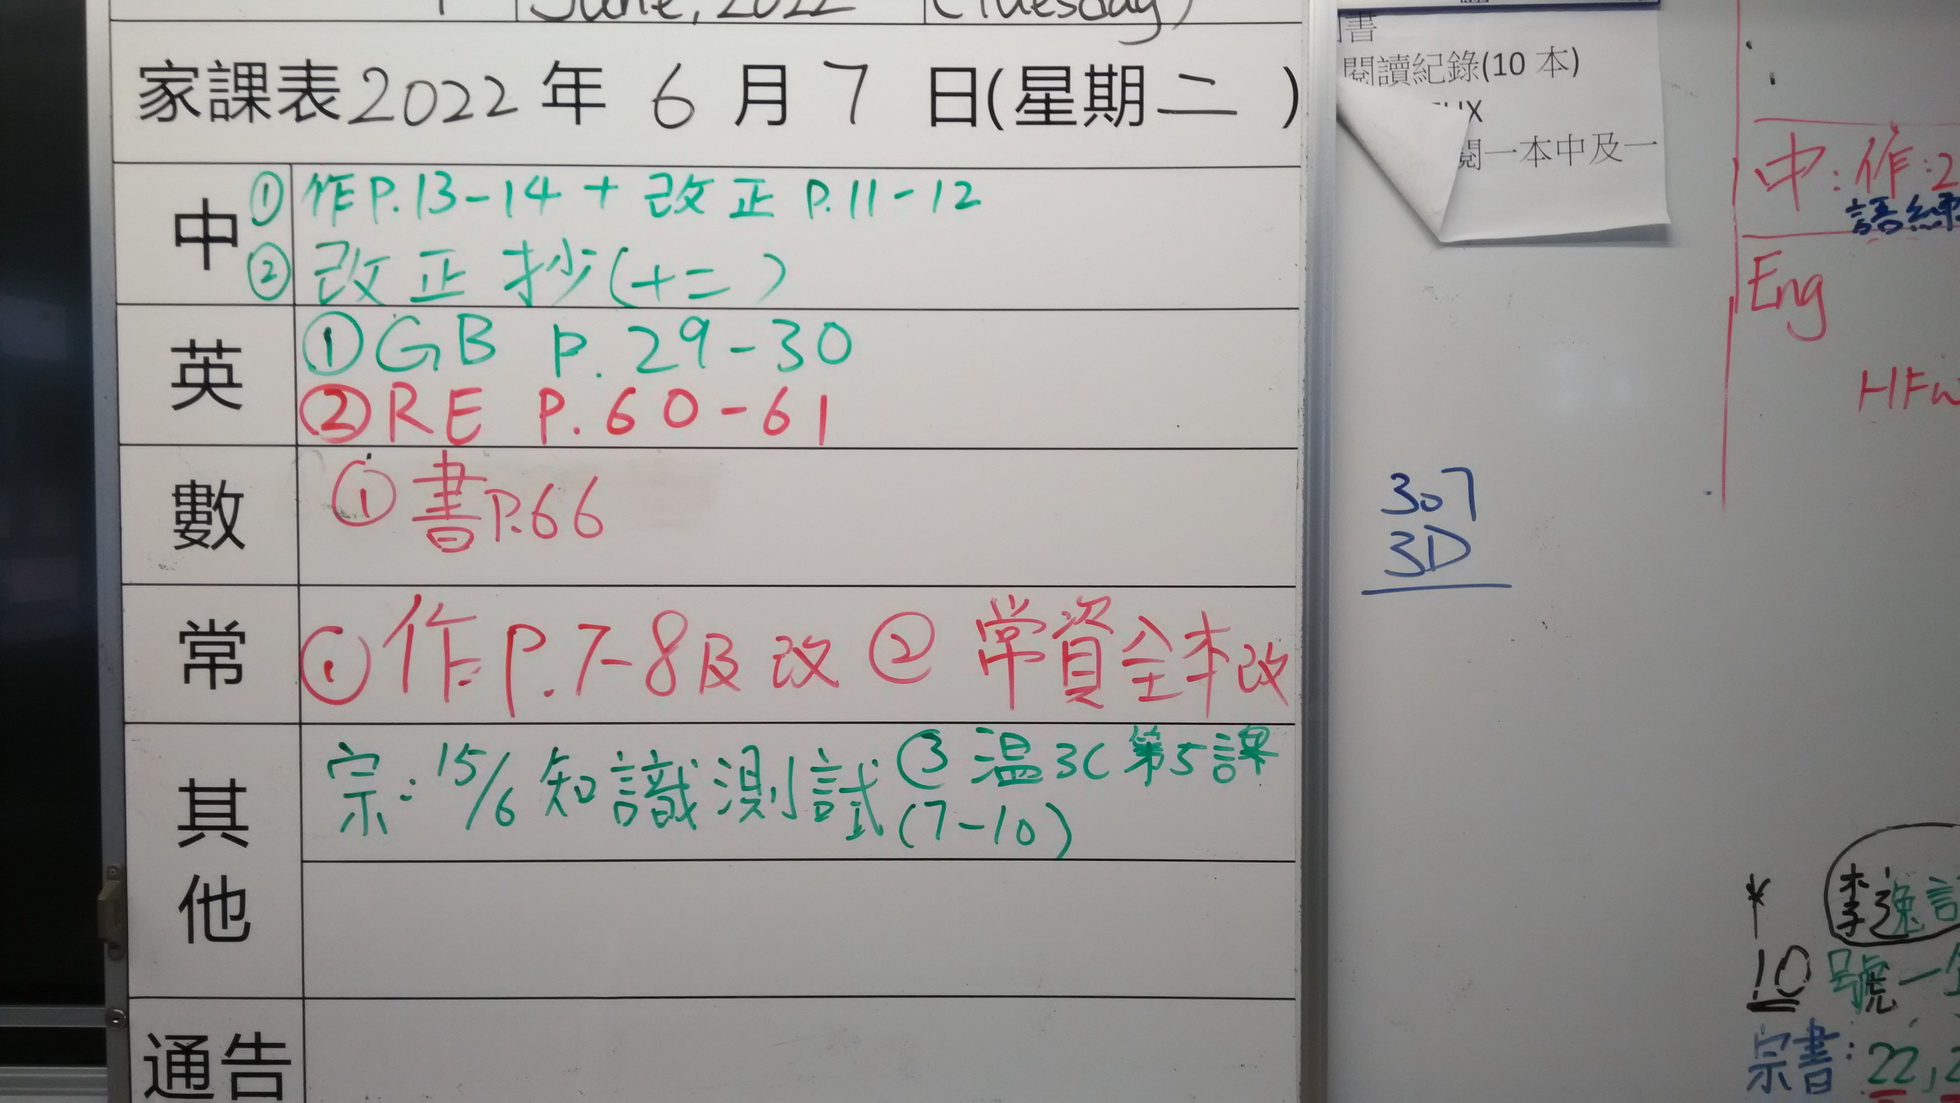 June, 2022 (Tuesday)
家課表2022年6月7日(星期二)
中
①作P.13-14+改正P.11-12
②改正抄(十二)
英
①GB P.29-30
②RE P.60-61
數
①書P.66
常
①作P.7-8及改②常資全本改
其他
宗:15/6知識測試③温3C第5課
(7-10)
通告
書
閱讀紀錄(10 本)
閱一本中及一
中:作:2
語練
Eng
HFW
307
3D
*
李逸
10號一
宗書:22,